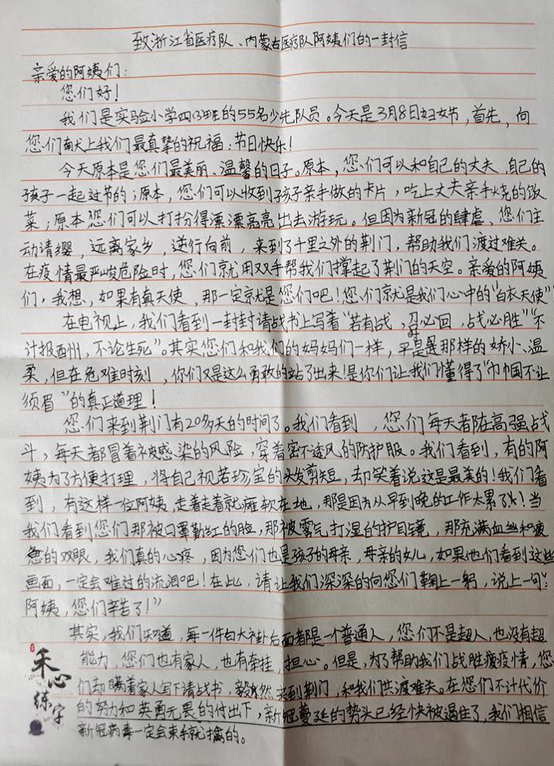 致浙江省医疗队、内蒙古医疗队阿姨们的一封信
亲爱的阿姨们：
您们好！
我们是实验小学四(3)班的55名少先队员。今天是3月8日妇女节，首先，向
您们献上我们最真挚的祝福：节日快乐！
今天原本是您们最美丽、温馨的日子。原本，您们可以和自己的丈夫，自己的
孩子一起过节的；原本，您们可以收到孩子亲手做的卡片，吃上丈夫亲手烧的饭
菜；原本您们可以打扮得漂漂亮亮出去游玩。但因为新冠的肆虐，您们主
动请缨，远离家乡，逆行向前，来到了千里之外的荆门，帮助我们渡过难关。
在疫情最严峻危险时，您们就用双手帮我们撑起了荆门的天空。亲爱的阿姨
们，我想，如果有真天使，那一定就是您们吧！您们就是我们心中的“白衣天使”
在电视上，我们看到一封封请战书上写着“若有战，召必回，战必胜”“不
计报酬，不论生死”。其实您们和我们的妈妈们一样，平时是那样的娇小、温
柔，但在危难时刻，你们又是这么勇敢的站了出来！是你们让我们懂得了“巾帼不让
须眉”的真正道理！
您们来到荆门有20多天的时间了。我们看到，您们每天都在高强战
斗，每天都冒着被感染的风险，穿着密不透风的防护服。我们看到，有的阿
姨为了方便打理，将自己视若珍宝的头发剪短，却笑着说这是最美的！我们看
到，有这样一位阿姨，走着走着就瘫软在地，那是因为从早到晚的工作太累了！当
我们看到您们那被口罩勒红的脸，那被雾气打湿的护目镜，那充满血丝和疲
惫的双眼，我们真的心疼，因为您们也是孩子的母亲，母亲的女儿，如果他们看到这些
画面，一定会难过的流泪吧！在此，请让我们深深的向您们鞠上一躬，说上一句：“
阿姨，您们辛苦了！”
其实，我们知道，每一件白大褂后面都是一个普通人，您们不是超人，也没有超
能力，您们也有家人，也有牵挂，担心。但是，为了帮助我们战胜瘟疫情，您
们却瞒着家人写下请战书，毅然来到荆门，和我们共渡难关。在您们不计代价
的努力和英勇无畏的付出下，新冠蔓延的势头已经快被遏住了，我们相信
新冠病毒一定会束手就擒的。
禾心
练字